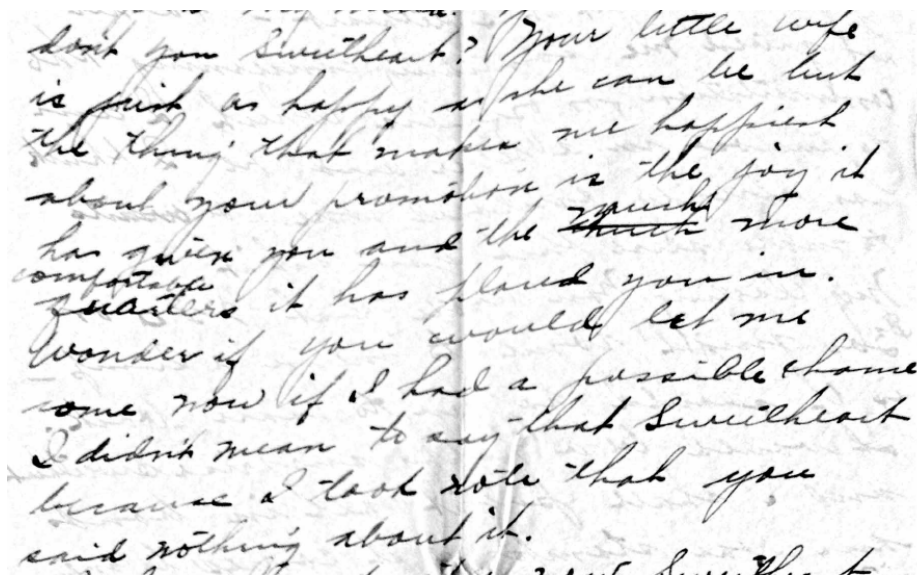 don't you Sweetheart? Your little wife
is just as happy as she can be but
the thing that makes me happiest
about your promotion is the joy it
has given you and the much more
comfortable
quarters it has placed you in.
wonder if you would let me
come now if I had a possible chance
I didn't mean to say that Sweetheart
because I took note that you
said nothing about it.
Sweetheart